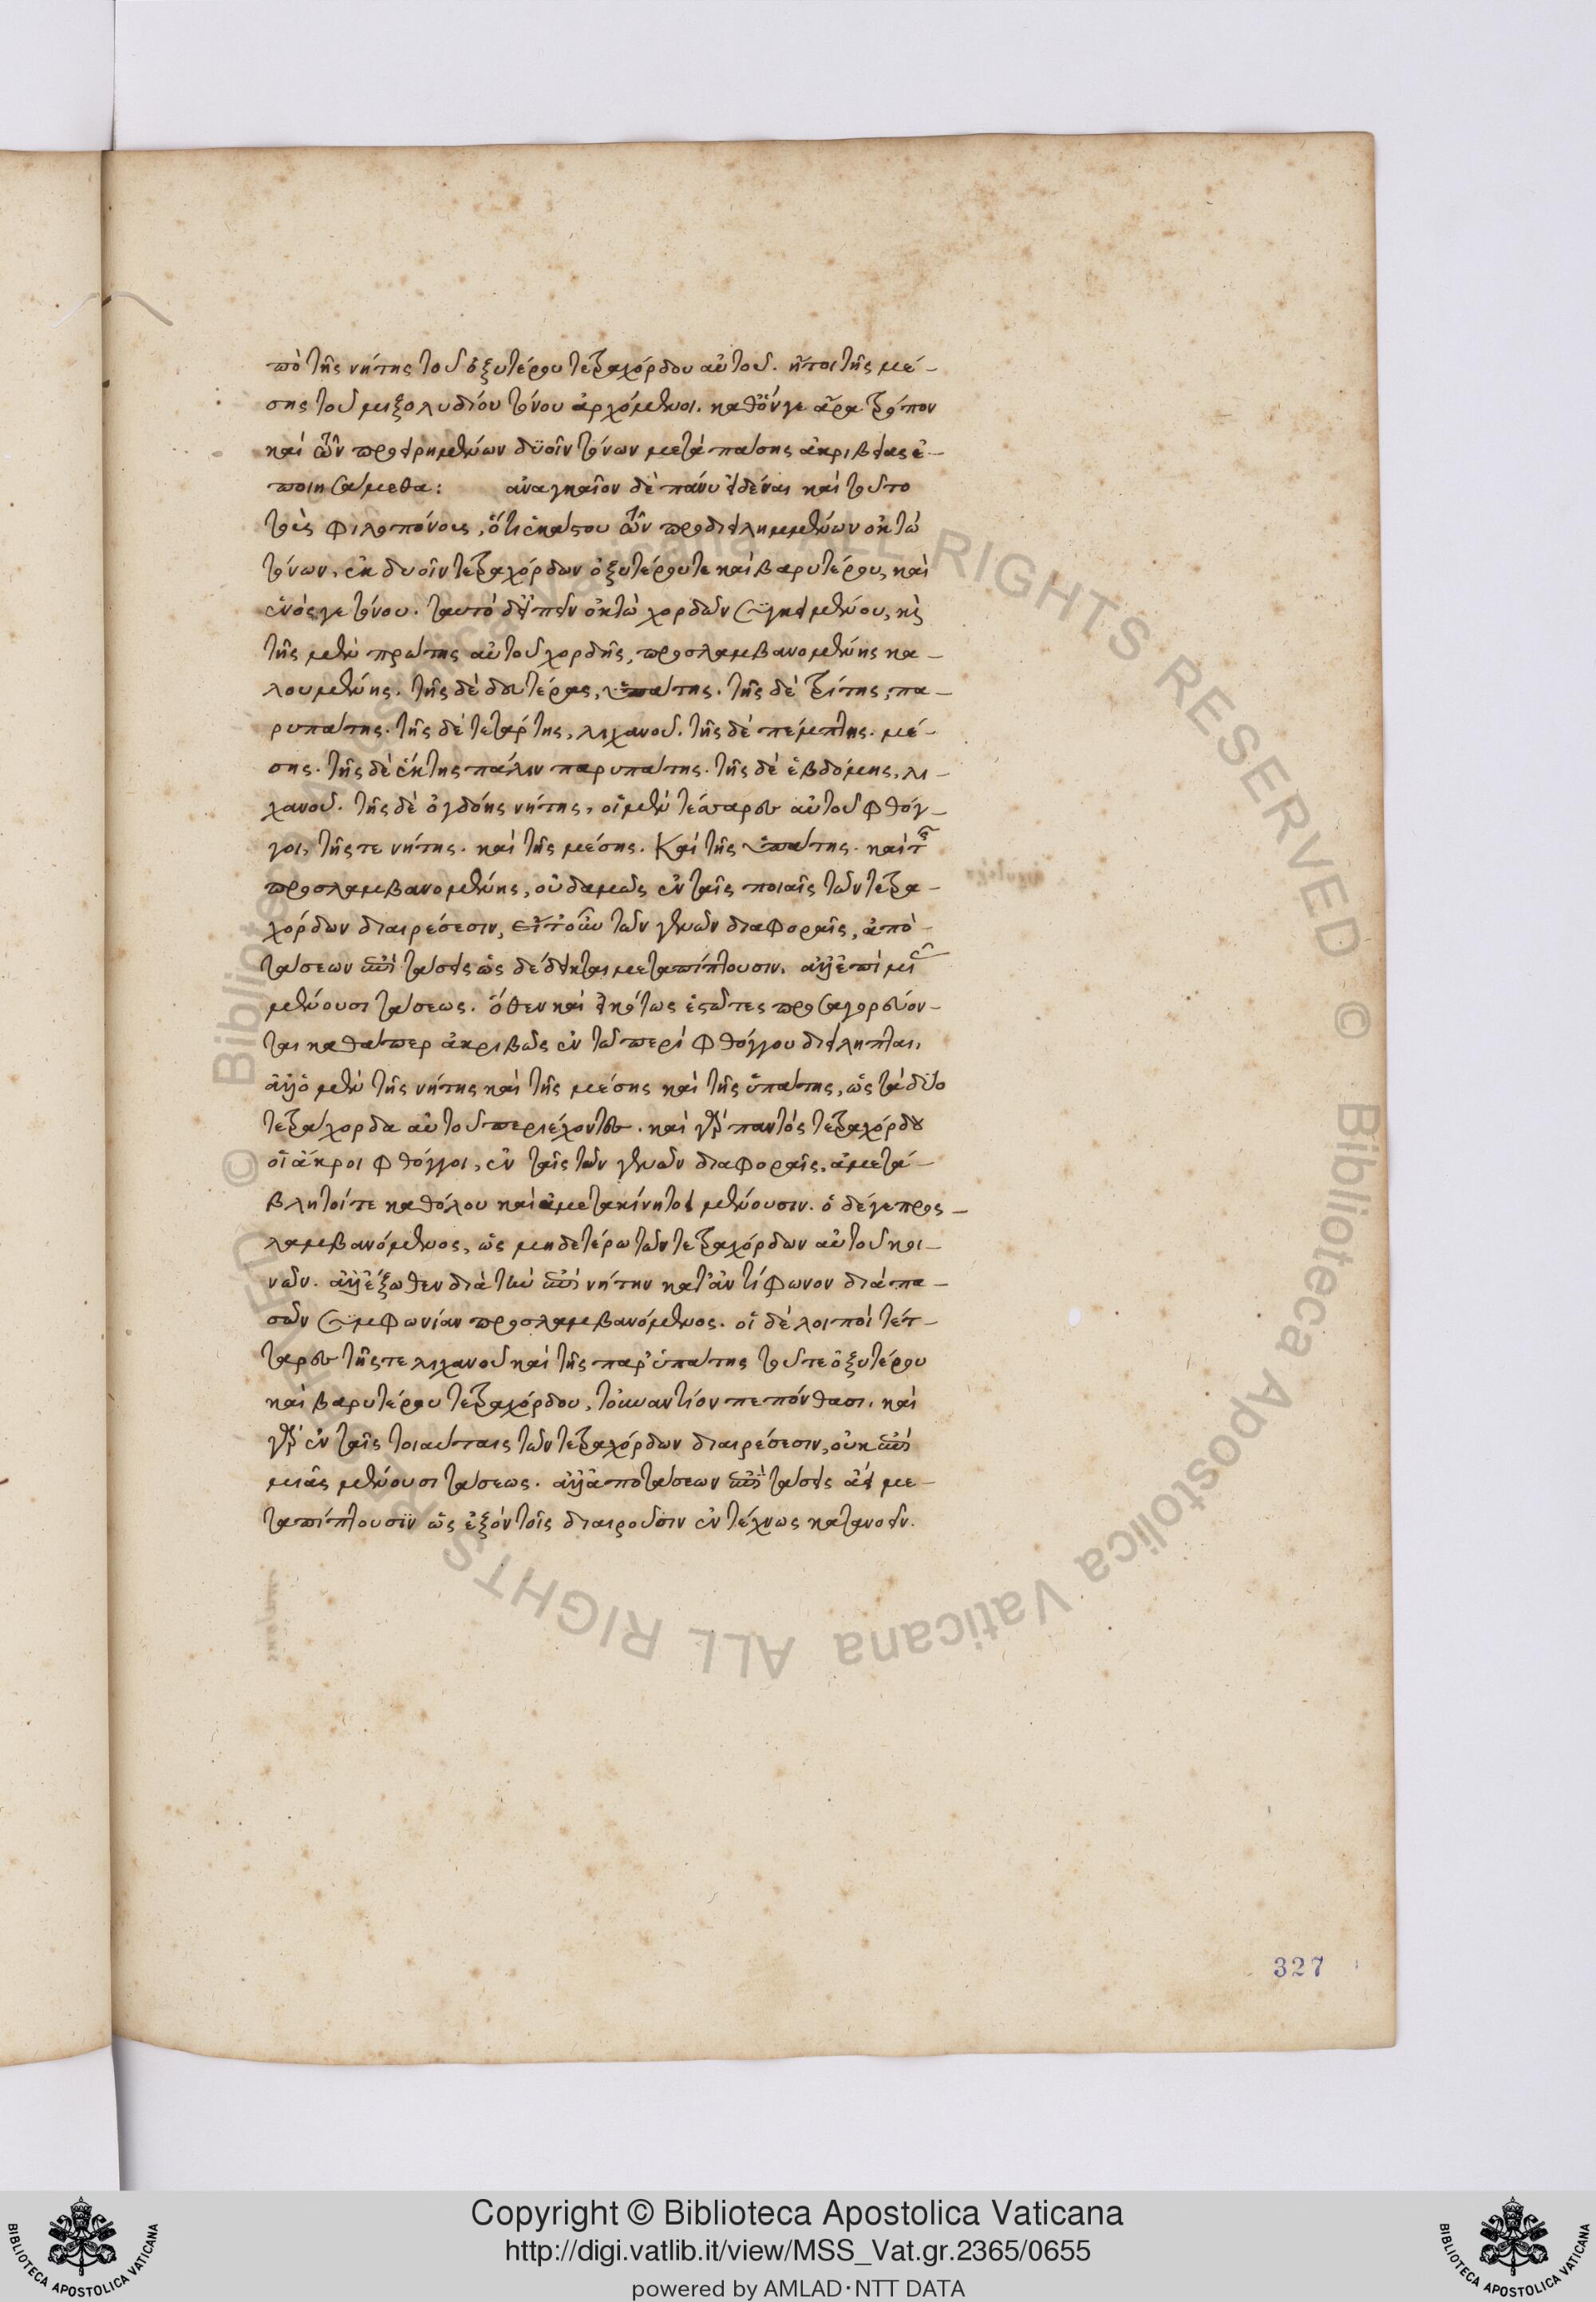 πὸ τῆς νήτης τοῦ ὀξυτέρου τετραχόρδου αὐτοῦ. ἤτοι τῆς μέ-
σης τοῦ μιξολυδίου τόνου ἀρχόμενοι. καθόνγε ἄρα τρόπον
καὶ τῶν προειρημένων δϋοῖν τόνων μετὰ πάσης ἀκριβείας ἐ-
ποιησάμεθα: ἀναγκαῖον δὲ πάνυ εἰδέναι καὶ τοῦτο
τοὺς φιλοπόνους, ὅτι ἑκάστου τῶν προδιειλημμένων ὀκτὼ
τόνων, ἐκ δυοῖν τετραχόρδων ὀξυτέρου τε καὶ βαρυτέρου, καὶ
ἑνός γε τόνου. ταυτὸ δ' εἰπεῖν ὀκτὼ χορδῶν συγκειμένου, καὶ
τῆς μὲν πρώτης αὐτοῦ χορδῆς, προσλαμβανομένης κα-
λουμένης. τῆς δὲ δευτέρας, ὑπάτης. τῆς δὲ τρίτης, πα-
ρυπάτης. τῆς δὲ τετάρτης, λιχανοῦ. τῆς δὲ πέμπτης. μέ-
σης. τῆς δὲ ἕκτης πάλιν παρυπάτης. τῆς δὲ ἑβδόμης, λι-
χανοῦ. τῆς δὲ ὀγδόης νήτης, οἱ μὲν τέσσαρες αὐτοῦ φθόγ-
γοι, τῆς τε νήτης. καὶ τῆς μέσης. Καὶ τῆς ὑπάτης. καὶ τῆς
προσλαμβανομένης, οὐδαμῶς ἐν ταῖς ποιαῖς τῶν τετρα-
χόρδων διαιρέσεσιν, τῶν γενῶν διαφοραῖς, ἀπὸ
τάσεων ἐπὶ τάσεις ὡς δέδεικται μεταπίπτουσιν. ἀλλ' ἐπὶ μιᾶς
μένουσι τάσεως. ὅθεν καὶ εἰκότως ἑστῶτες προσαγορεύον-
ται καθάπερ ἀκριβῶς ἐν τῶ περὶ φθόγγου διείληπται,
ἀλλ' ὁ μὲν τῆς νήτης καὶ τῆς μέσης καὶ τῆς ὑπάτης, ὡς τὰ δύο
τετράχορδα αὐτοῦ περιέχοντες. καὶ γὰρ παντὸς τετραχόρδου
οἱ ἄκροι φθόγγοι, ἐν ταῖς τῶν γενῶν διαφοραῖς, ἀμετά-
βλητοί τε καθόλου καὶ ἀμετακίνητοι μένουσιν. ὁ δέ γε προς-
λαμβανόμενος, ὡς μηδετέρω τῶν τετραχόρδων αὐτοῦ κοι-
νῶν. ἀλλ' ἔξωθεν διὰ τὴν ἐπὶ νήτην κατ' ἀντίφωνον διὰ πα-
σῶν συμφωνίαν προσλαμβανόμενος. οἱ δὲ λοιποὶ τέτ-
ταρες τῆς τε λιχανοῦ καὶ τῆς παρ' ὑπάτης τοῦ τε ὀξυτέρου
καὶ βαρυτέρου τετραχόρδου, τοὐναντίον πεπόνθασι, καὶ
γὰρ ἐν ταῖς τοιαύταις τῶν τετραχόρδων διαιρέσεσιν, οὐκ ἐπὶ
μιᾶς μένουσι τάσεως. ἀλλ' ἀπὸ τάσεων ἐπὶ τάσεις ἀεὶ με-
ταπίπτουσϊν ὡς ἐξὸν τοῖς διαιροῦσιν ἐντέχνως κατανοεῖν.
327
© Biblioteca Apostolica Vaticana ALL RIGHTS RESERVED
© Biblioteca Apostolica Vaticana ALL RIGHTS RESERVED
Copyright © Biblioteca Apostolica Vaticana
http://digi.vatlib.it/view/MSS_Vat.gr.2365/0655
powered by AMLAD·NTT DATA
BIBLIOTECA APOSTOLICA VATICANA
BIBLIOTECA APOSTOLICA VATICANA